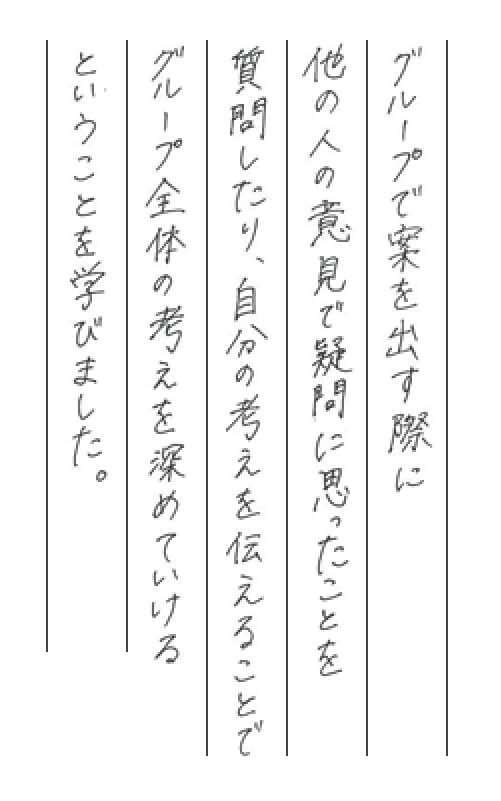 グループで案を出す際に
他の人の意見で疑問に思ったことを
質問したり、自分の考えを伝えることで
グループ全体の考えを深めていける
ということを学びました。